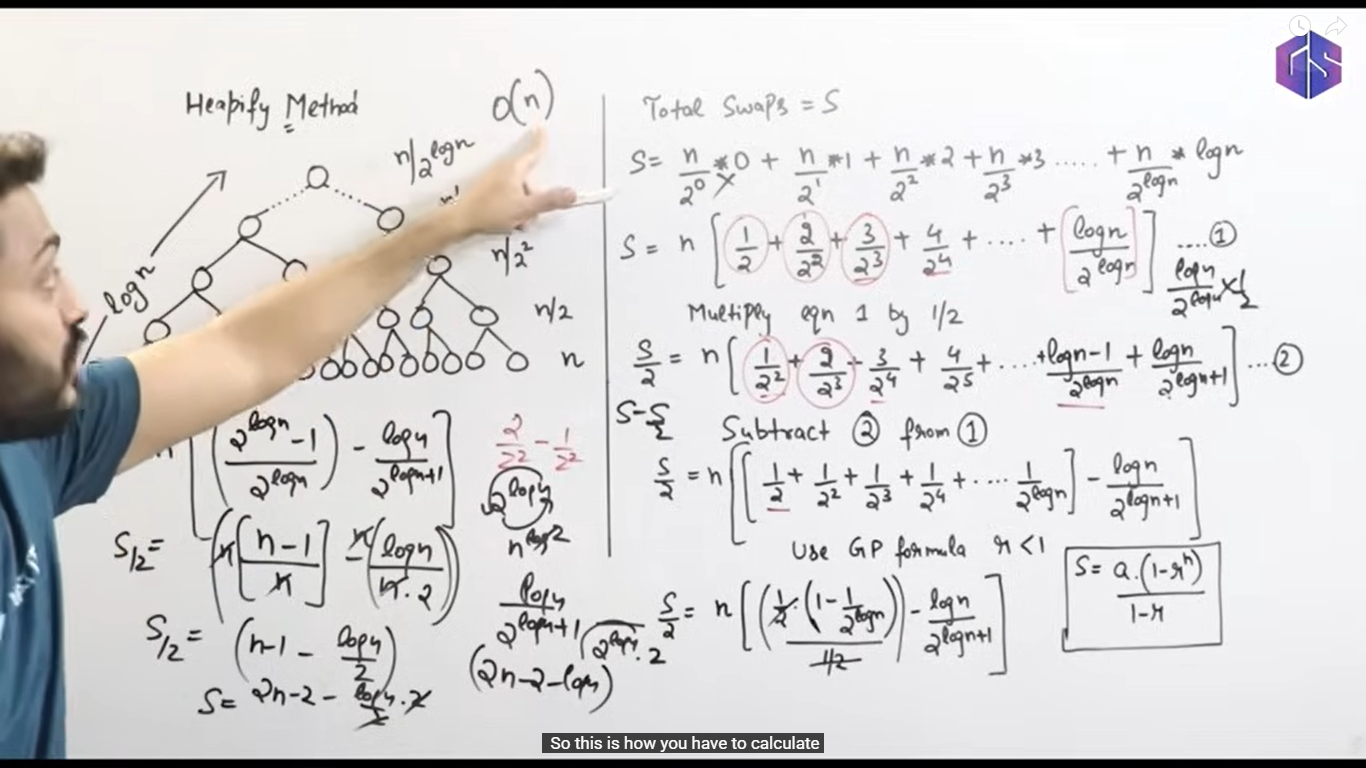 Heapify Method
O(n)
n/2^logn
n/2²
n/2
n
logn
[(2^logn - 1 / 2^logn) - logn / 2^(logn+1)]
2/2² - 1/2²
2^logn
n^log2
S/2 = (n[n-1 / n] - n(logn / n·2))
logn / 2^(logn+1)
2^logn · 2
S/2 = (n-1 - logn/2)
(2n-2-logn)
S= 2n-2 - logn/2 · 2
Total Swaps = S
S= n/2⁰ *0 + n/2¹ *1 + n/2² *2 + n/2³ *3 ..... + n/2^logn * logn
S = n [1/2 + 2/2² + 3/2³ + 4/2⁴ + .... + logn/2^logn] ....①
logn/2^logn × 1/2
Multiply eqn 1 by 1/2
S/2 = n [1/2² + 2/2³ + 3/2⁴ + 4/2⁵ + .... + logn-1/2^logn + logn/2^(logn+1)] ...②
S-S/2
Subtract ② from ①
S/2 = n [[1/2 + 1/2² + 1/2³ + 1/2⁴ + .... 1/2^logn] - logn/2^(logn+1)]
Use GP formula r<1
S= a.(1-rⁿ) / 1-r
S/2 = n [(1/2·(1-1/2^logn) / 1/2) - logn/2^(logn+1)]
GS
So this is how you have to calculate